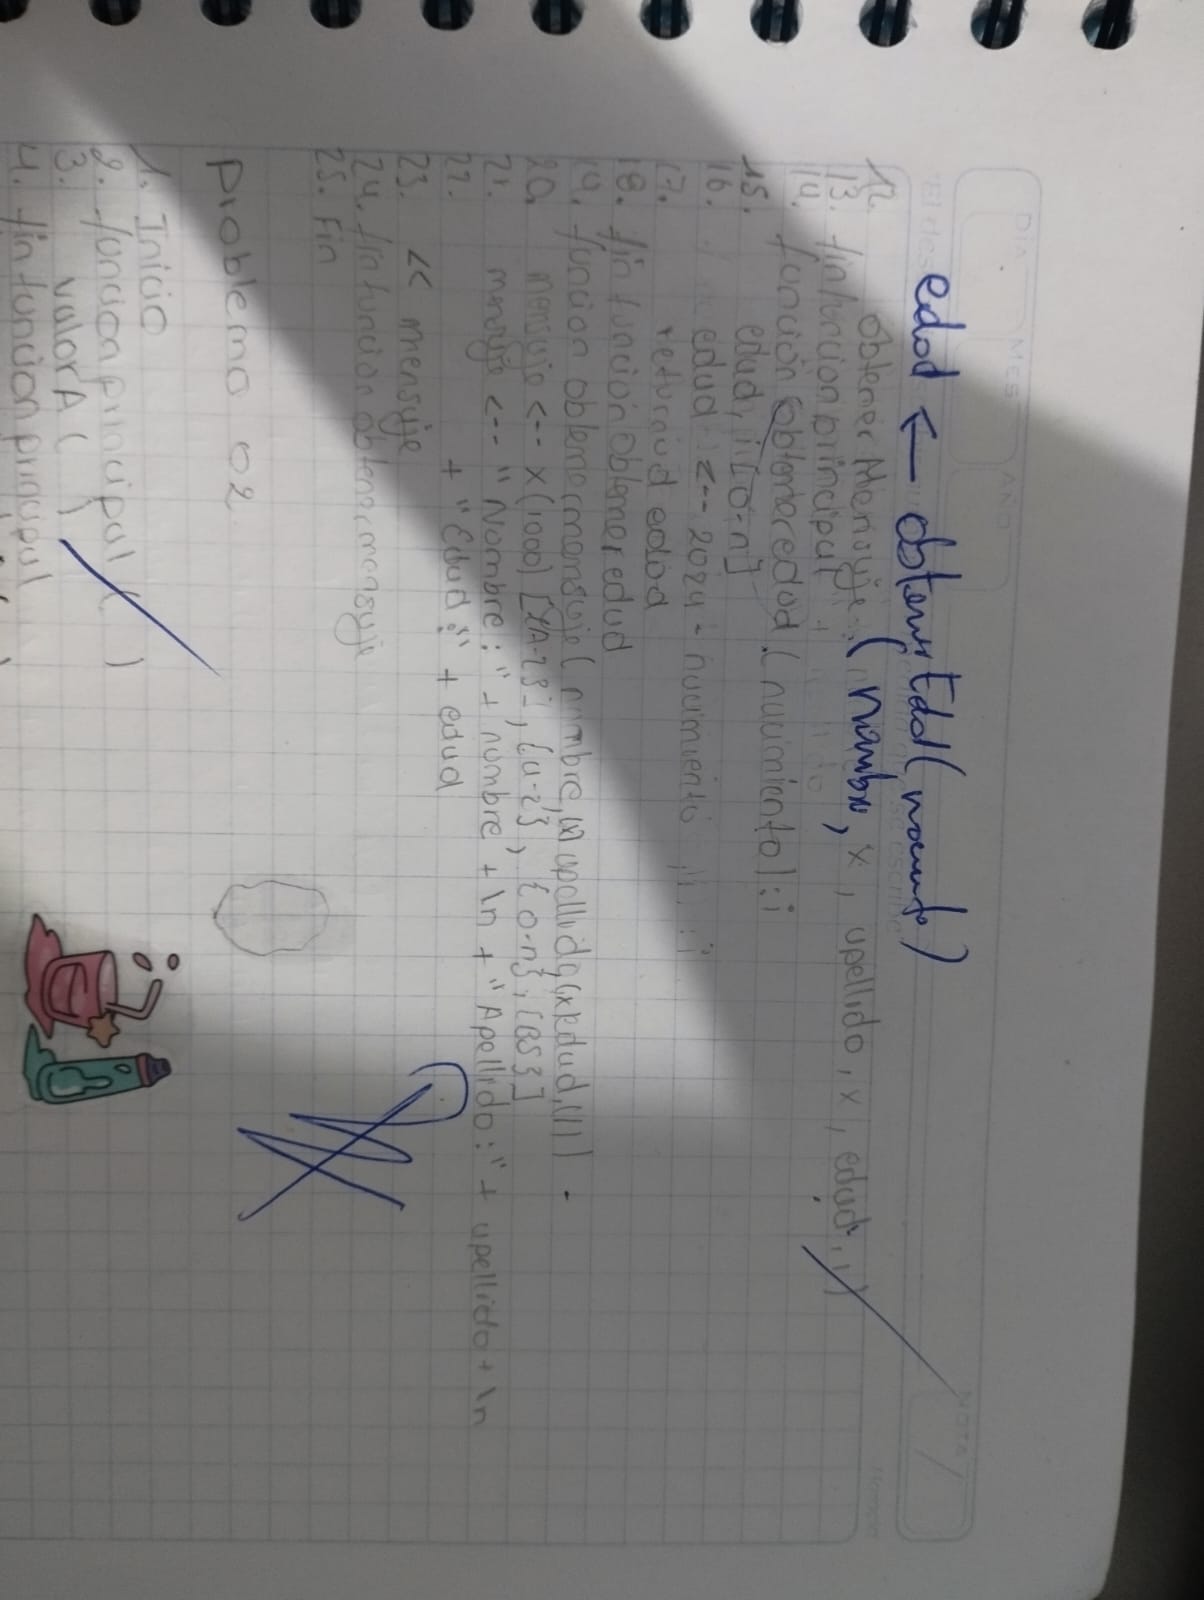 DIA MES AÑO
NOTA
edad ← obtenerEdad( nacimiento)
12. obtener Mensuje ( nombre, x, upellido, x, edud, i)
13. fin funcion principal
14. función obtener edad (nucimiento):i
15. edud, i [0-n]
16. edud <-- 2024 - nucimiento
17. returnud edad
18. fin función obtener edud
19. función obtener mensuje ( numbre, (x) upellido, (x) edud, (i) )
20. mensuje <-- x (1000) [{A-Z}, {u-z}, {0-n}, {CS}]
21. mensuje <-- "Nombre:" + numbre + \n + "Apellido:" + upellido + \n
22. + "Edud:" + edud
23. << mensuje
24. fin funcion obtener mensuje
25. Fin
Problema 02
1. Inicio
2. función principal ( )
3. valorA ( )
4. fin funcion principul